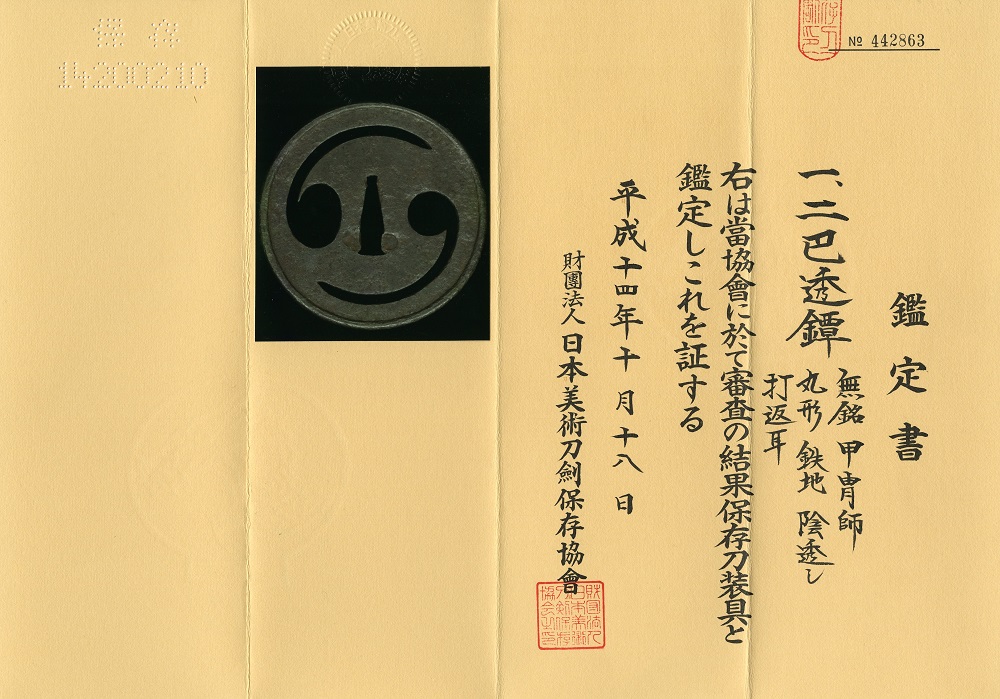 保存
14200210
No 442863
鑑定書
一、二巴透鐔
無銘 甲冑師
丸形 鉄地 陰透し
打返耳
右は當協會に於て審査の結果保存刀装具と
鑑定しこれを証する
平成十四年十月十八日
財團法人日本美術刀劍保存協會
財団法人
日本美術
刀剣保存
協会之印